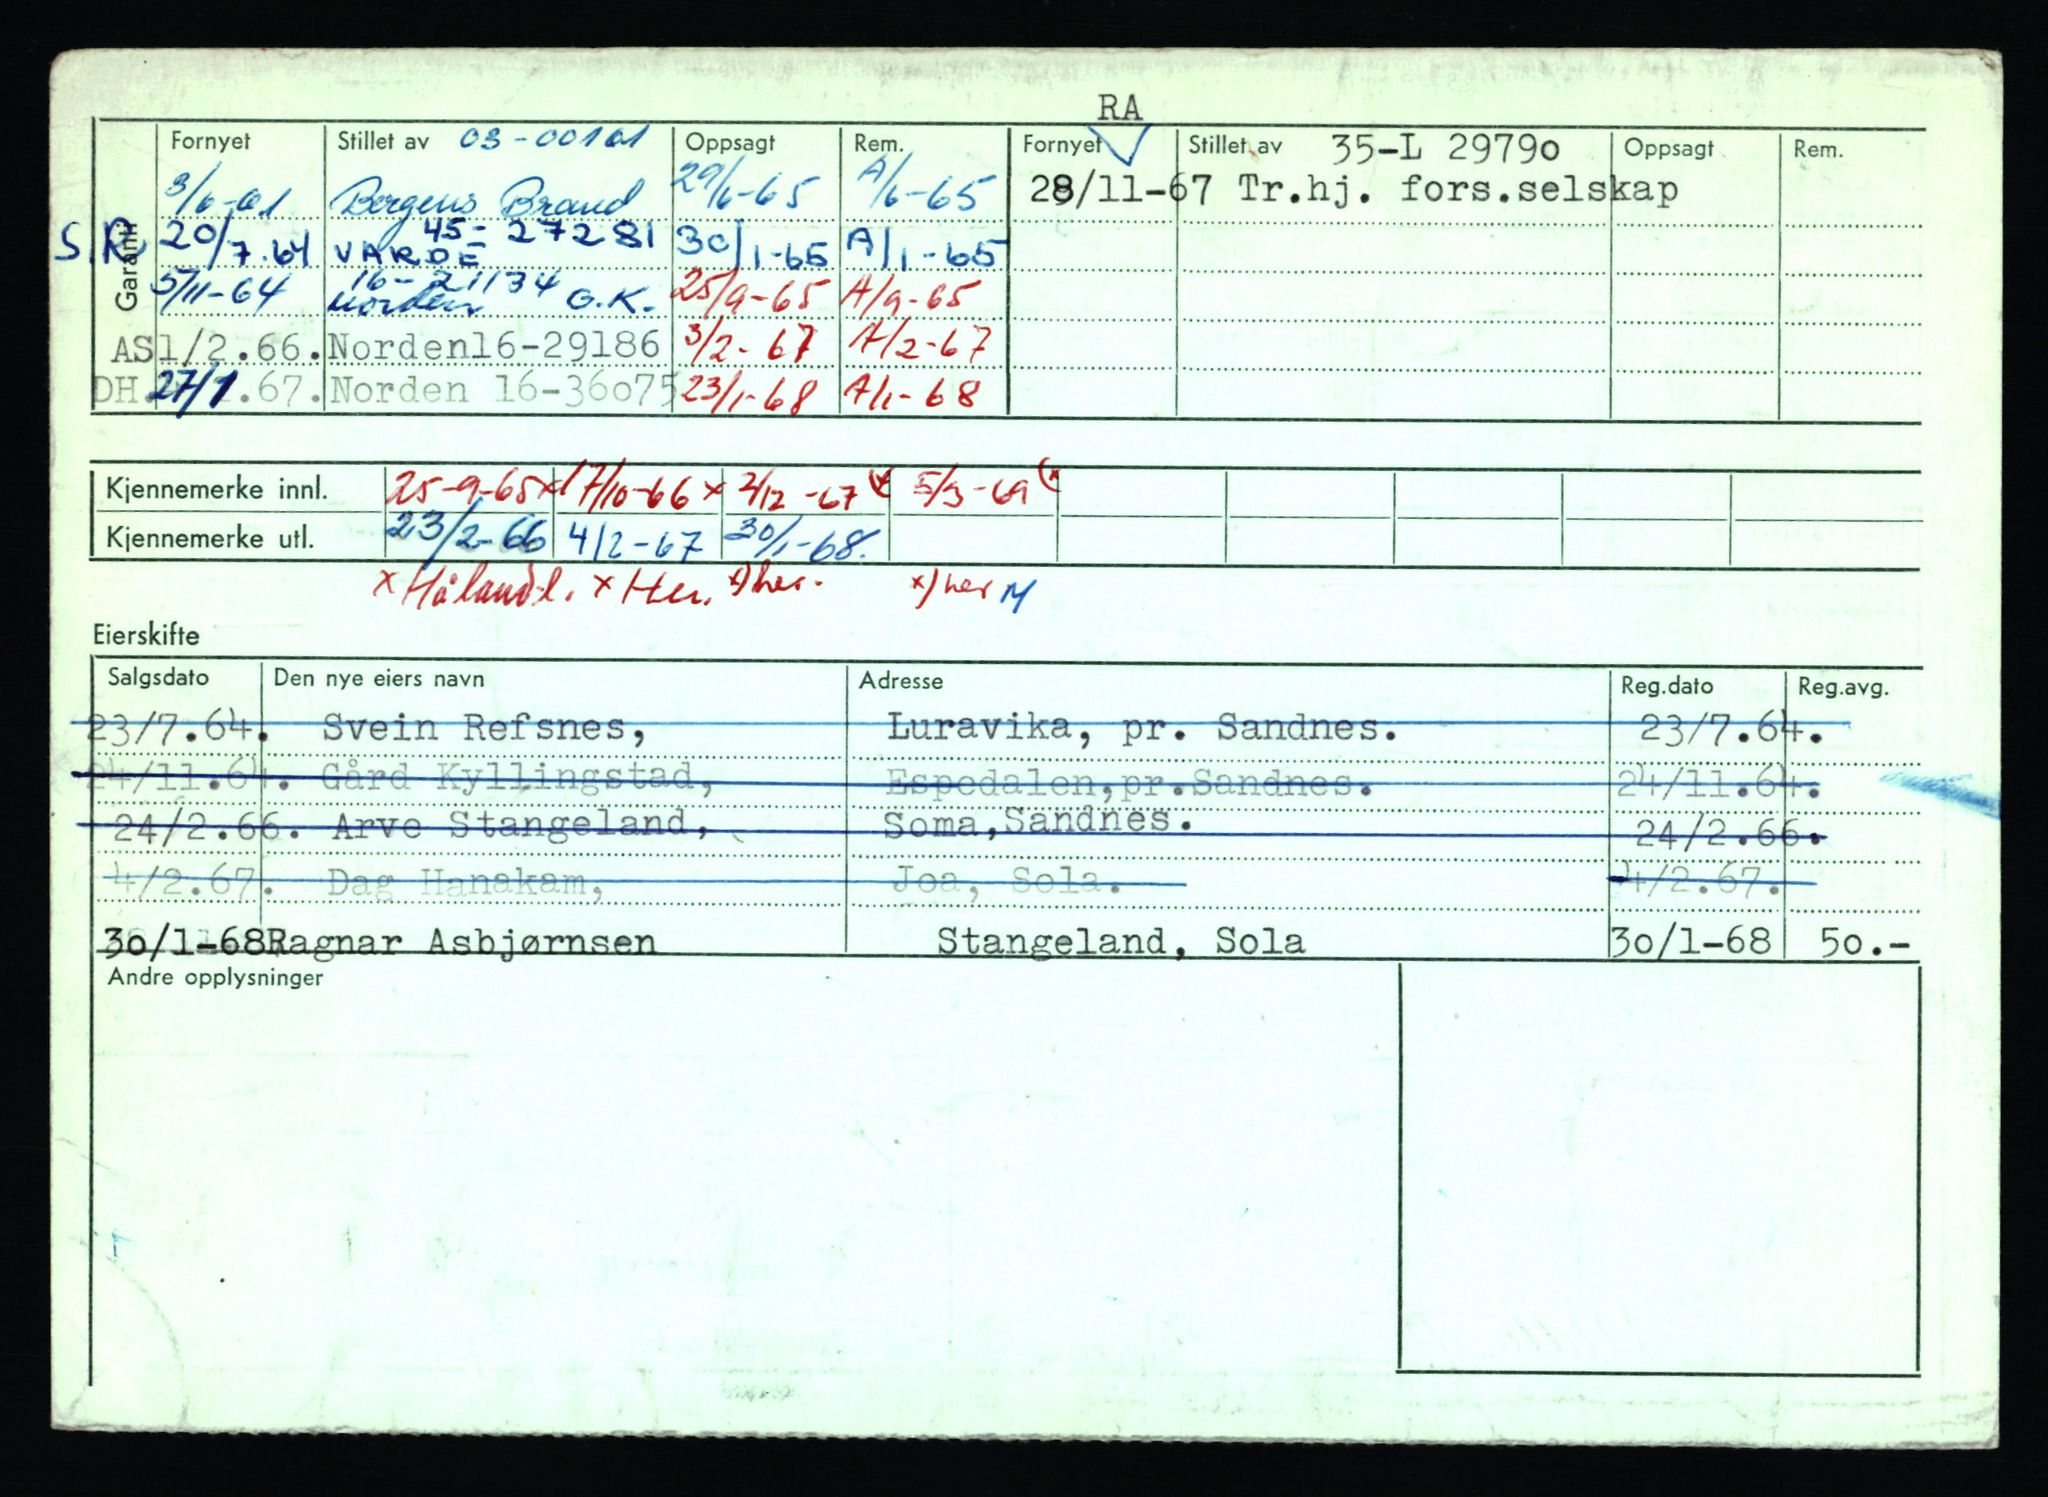 RA
Fornyet Stillet av 03-00161 Oppsagt Rem. Fornyet Stillet av 35-L 29790 Oppsagt Rem.
3/6-61 Bergens Brand 29/6-65 A/6-65 28/11-67 Tr.hj. fors.selskap
Garanti
45-27281
S.R. 20/7.64 VARDE 30/1-65 A/1-65
16-21134
5/11-64 Norden G.K. 25/9-65 A/9-65
AS 1/2.66. Norden16-29186 3/2-67 A/2-67
DH. 27/1.67. Norden 16-36075 23/1-68 A/1-68
Kjennemerke innl. 25-9-65 x 17/10-66 x 2/12-67 x 5/3-69 (x
Kjennemerke utl. 23/2-66 4/2-67 30/1-68.
x Hålandl. x Her. x) her. x) her M
Eierskifte
Salgsdato Den nye eiers navn Adresse Reg.dato Reg.avg.
23/7.64. Svein Refsnes, Luravika, pr. Sandnes. 23/7.64.
24/11.64. Gård Kyllingstad, Espedalen,pr.Sandnes. 24/11.64.
24/2.66. Arve Stangeland, Soma,Sandnes. 24/2.66.
4/2.67. Dag Hanakam, Joa, Sola. 4/2.67.
30/1-68 Ragnar Asbjørnsen Stangeland, Sola 30/1-68 50.-
Andre opplysninger